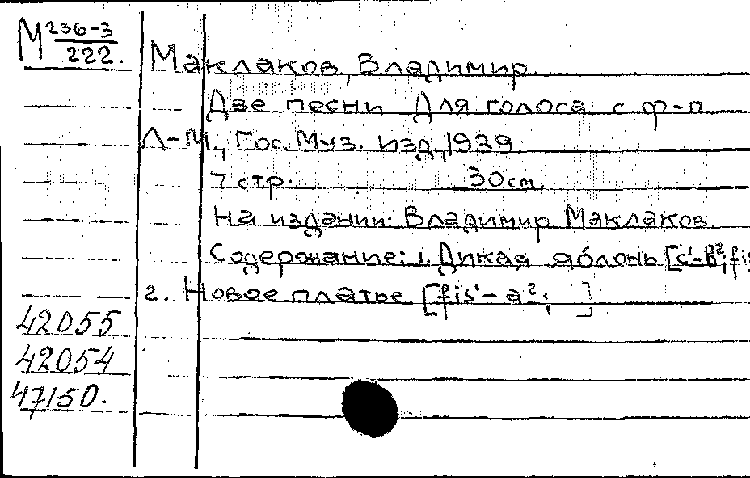 М 236-3
222.
Маклаков, Владимир.
Две песни Для голоса с ф-п
Л-М., Гос. Муз. изд, 1939
7 стр. 30 cm.
На издании: Владимир Маклаков.
Содержание: 1. Дикая яблонь
2. Новое платье [fis'-a²; ]
42055
42054
47150.